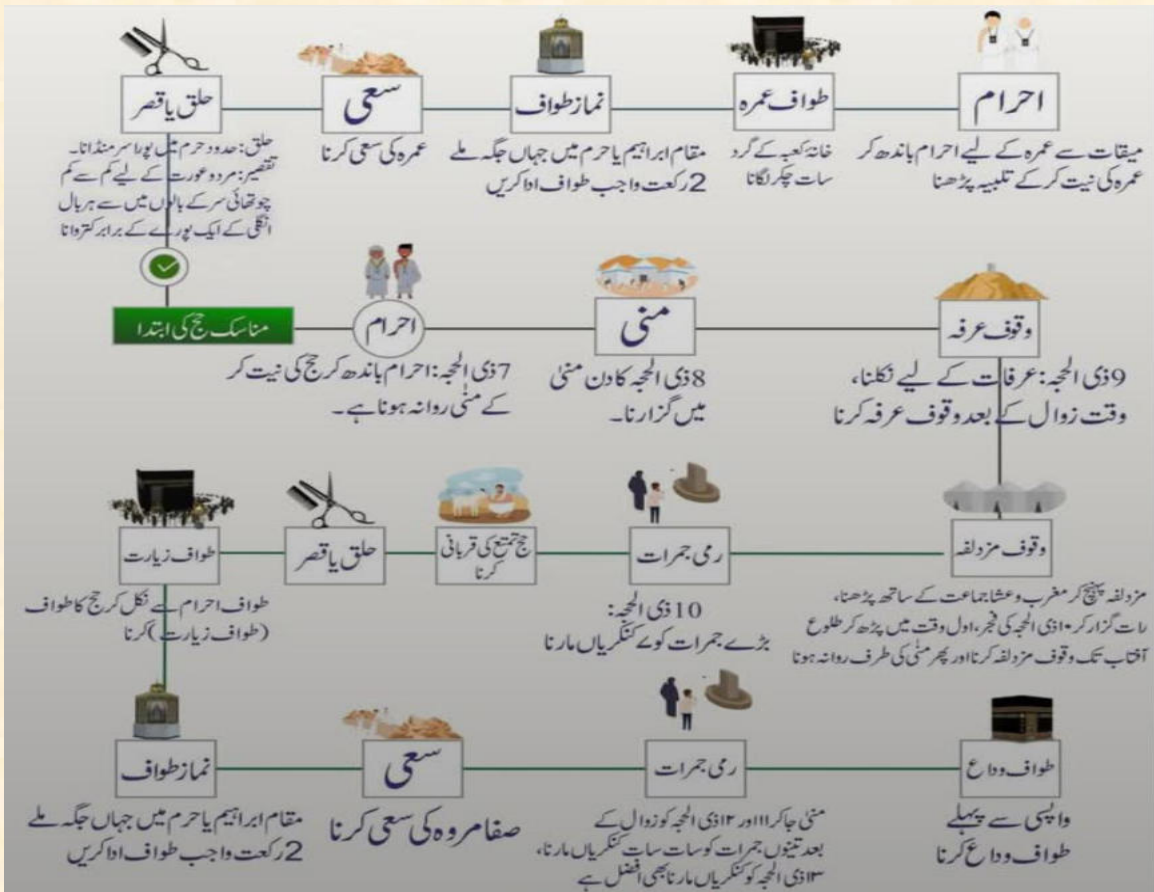 احرام
میقات سے عمرہ کے لیے احرام باندھ کر
عمرہ کی نیت کر کے تلبیہ پڑھنا
طواف عمرہ
خانۂ کعبہ کے گرد
سات چکر لگانا
نماز طواف
مقام ابراہیم یا حرم میں جہاں جگہ ملے
2 رکعت واجب طواف ادا کریں
سعی
عمرہ کی سعی کرنا
حلق یا قصر
حلق: حدود حرم میں پورا سر منڈانا۔
تقصیر: مرد و عورت کے لیے کم سے کم
چوتھائی سر کے بالوں میں سے ہر بال
انگلی کے ایک پورے کے برابر کتروانا
مناسک حج کی ابتدا
احرام
7 ذی الحجہ: احرام باندھ کر حج کی نیت کر
کے منٰی روانہ ہونا ہے۔
منی
8 ذی الحجہ کا دن منیٰ
میں گزارنا۔
وقوف عرفہ
9 ذی الحجہ: عرفات کے لیے نکلنا،
وقت زوال کے بعد وقوف عرفہ کرنا
وقوف مزدلفہ
مزدلفہ پہنچ کر مغرب و عشا جماعت کے ساتھ پڑھنا،
رات گزار کر ۱۰ ذی الحجہ کی فجر، اول وقت میں پڑھ کر طلوع
آفتاب تک وقوف مزدلفہ کرنا اور پھر منٰی کی طرف روانہ ہونا
رمی جمرات
10 ذی الحجہ:
بڑے جمرات کو ۷ کنکریاں مارنا
حج تمتع کی قربانی
کرنا
حلق یا قصر
طواف زیارت
طواف احرام سے نکل کر حج کا طواف
(طواف زیارت) کرنا
نماز طواف
مقام ابراہیم یا حرم میں جہاں جگہ ملے
2 رکعت واجب طواف ادا کریں
سعی
صفا مروہ کی سعی کرنا
رمی جمرات
منیٰ جا کر ۱۱ اور ۱۲ ذی الحجہ کو زوال کے
بعد تینوں جمرات کو سات سات کنکریاں مارنا،
۱۳ ذی الحجہ کو کنکریاں مارنا بھی افضل ہے
طواف وداع
واپسی سے پہلے
طواف وداع کرنا